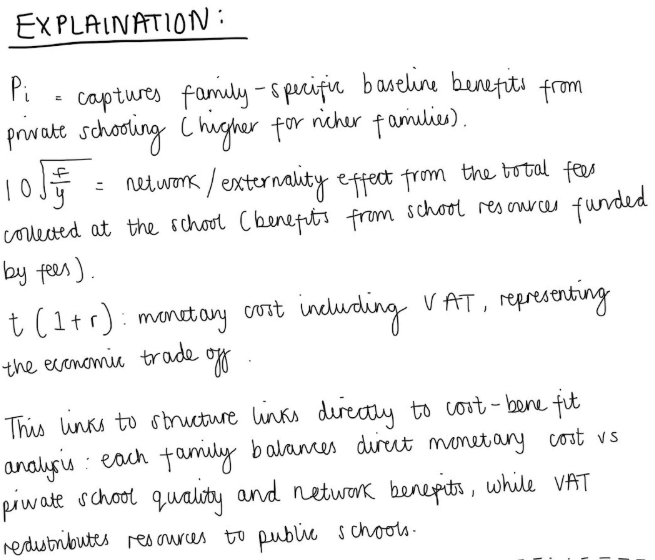 EXPLAINATION:
Pi = captures family-specific baseline benefits from
private schooling (higher for richer families).
10√(F/y) = network/externality effect from the total fees
collected at the school (benefits from school resources funded
by fees).
t(1+r): monetary cost including VAT, representing
the economic trade off.
This links to structure links directly to cost-benefit
analysis: each family balances direct monetary cost vs
private school quality and network benefits, while VAT
redistributes resources to public schools.